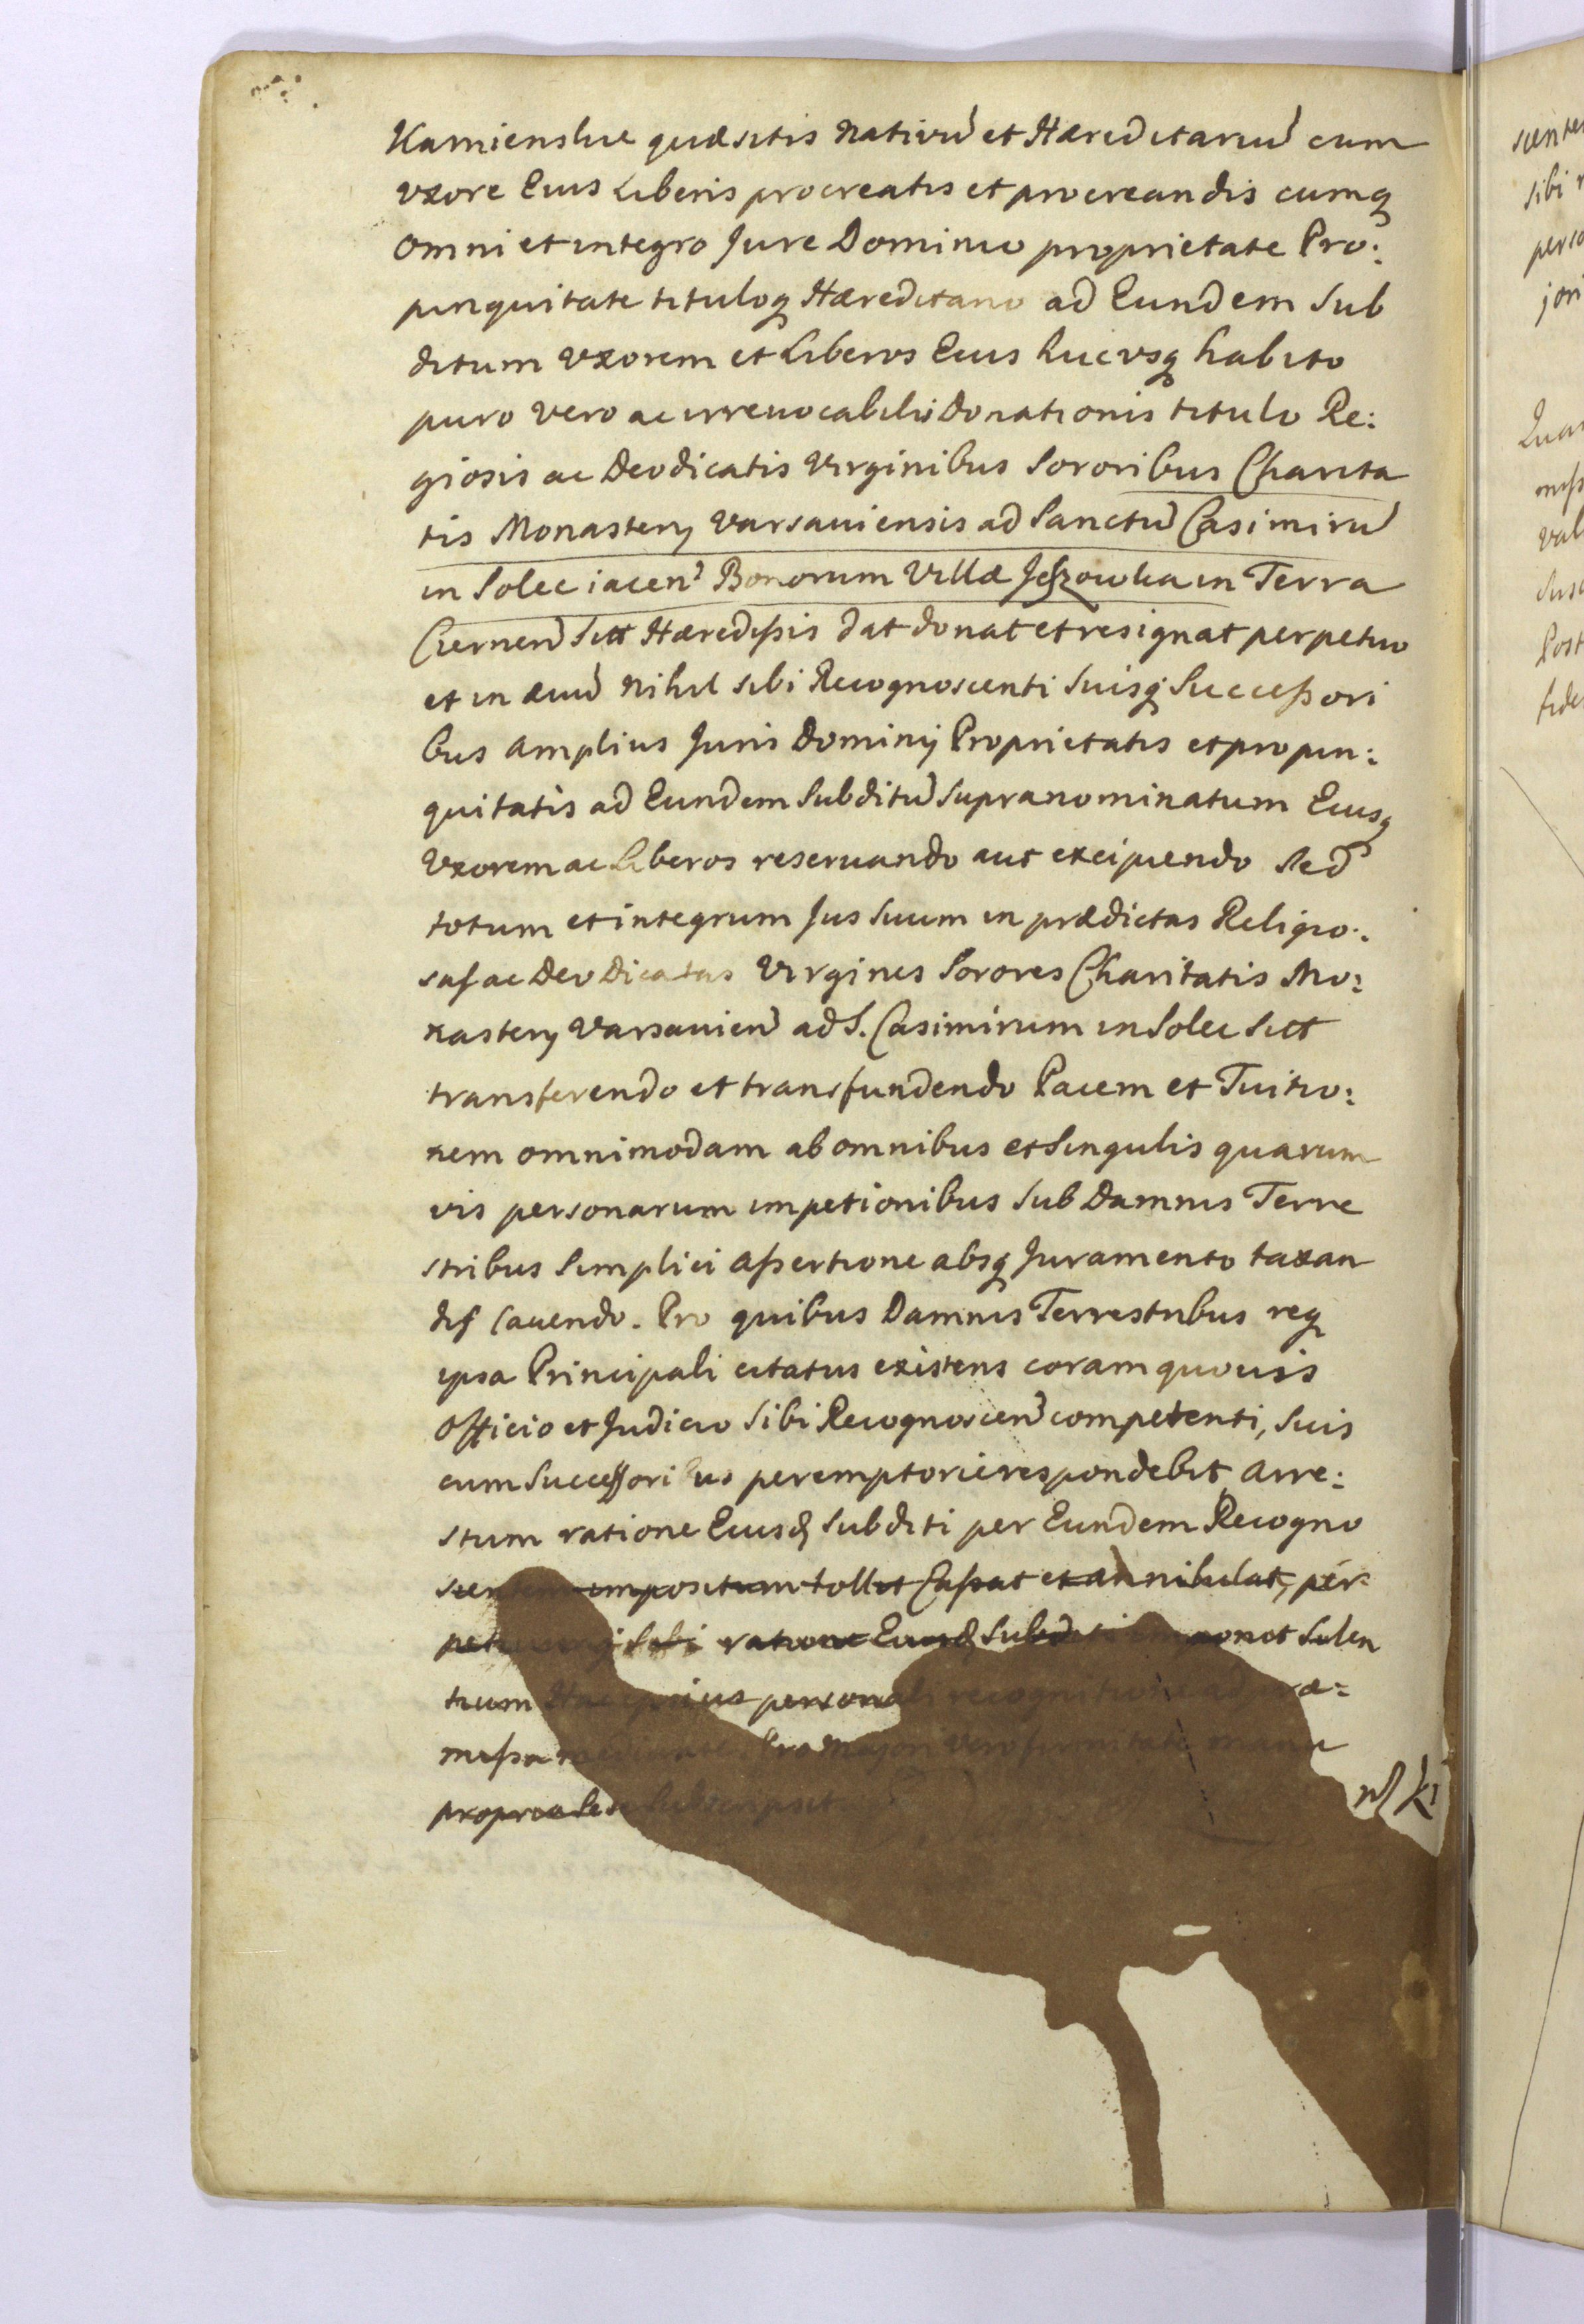 Kamienskie quæsitis Nativũ et Hæreditariũ cum
vxore Eius Liberis procreatis et procreandis cumq
omni et integro Jure Dominio proprietate Pro:
pinquitate tituloq Hæreditario ad Eundem Sub
ditum Vxorem et Liberos Eius hucvsq habito
puro Vero ac irreuocabilis Donationis titulo Re:
giosis ac Deodicatis Virginibus Sororibus Charita
tis Monastery Varsauiensis ad Sanctũ Casimirũ
in Solec iacen Bonorum Villæ in Terra
Czernen Sitt Hæredißis dat donat et resignat perpetuo
et in æuũ Nihil sibi Recognoscenti Suisq Successori
bus amplius Juris Dominij Proprietatis et propin:
quitatis ad Eundem Subditũ supranominatum Eiusq
Vxorem ac Liberos reseruando aut excipiendo Sed
totum et integrum Jus Suum in prædictas Religio:
sas ac Deo Dicatas Virgines Sorores Charitatis Mo:
nastery Varsauien ad S. Casimirum in Solec Sitt
transferendo et transfundendo Pacem et Tuitio:
nem omnimodam ab omnibus et Singulis quarum
vis personarum impetionibus Sub Damnis Terre
stribus Simplici aßertione absq Juramento taxan
dis Cauendo. Pro quibus Damnis Terrestribus req
ipsa Principali citatus existens coram quouis
Officio et Judicio Sibi Recognoscen competenti, Suis
cum Successoribus peremptorie respondebit Arre:
stum ratione Eiusd Subditi per Eundem Recogno
impositum tollit Caßat et annihilat, per:
Sibi ratione Eiusd Subditi imponet Silen
tium personali recognitione ad præ:
mißa Pro Majori Vero firmitate manu
propria Se subscripsit